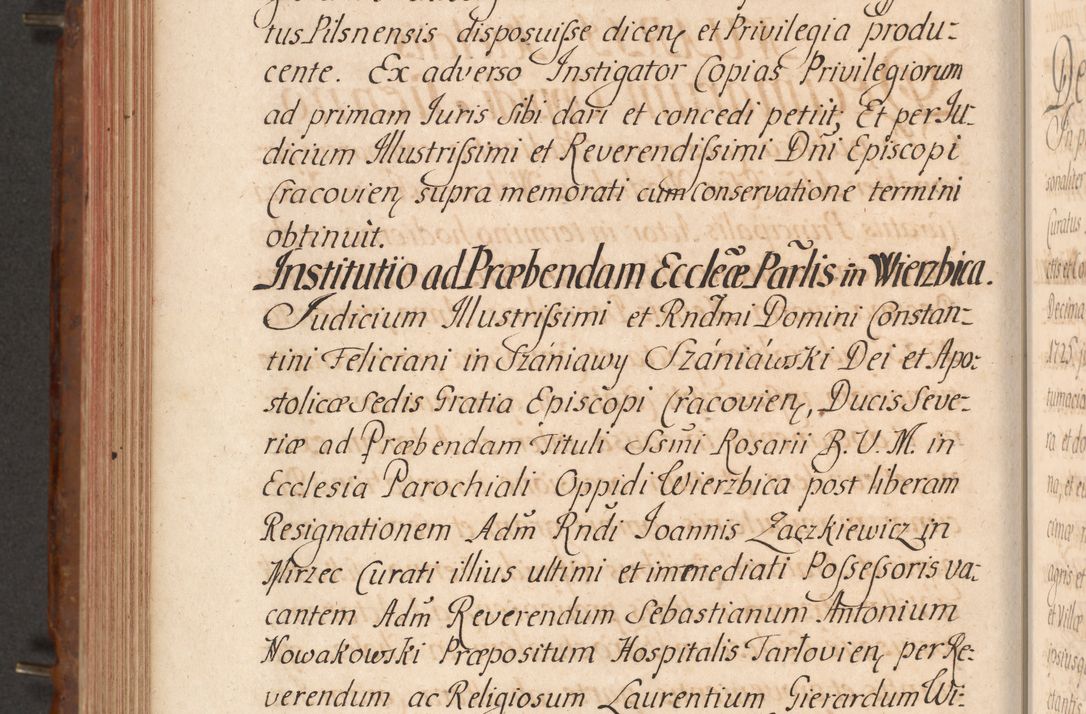 tus Pilsnensis disposuisse dicenȩ et Privilegia produ:
cente. Ex adverso Instigator Copias Privilegiorum
ad primam Iuris sibi dari et concedi petiit; Et per Iu:
dicium Illustrissimi et Reverendissimi Dñi Episcopi
Cracovienȩ supra memorati cum conservatione termini
obtinuit.
Institutio ad Præbendam Eccleæ Parlis in Wierzbica.
Judicium Illustrissimi et Rndmi Domini Constan:
tini Feliciani in Szániawy Szániáwski Dei et Apo:
stolicæ Sedis Gratia Episcopi Cracovienȩ, Ducis Seve:
riæ ad Præbendam Tituli Ssmi Rosarii B. V. M. in
Ecclesia Parochiali Oppidi Wierzbica post liberam
Resignationem Adm Rndi Joannis Zączkiewicz in
Mirzec Curati illius ultimi et immediati Possessoris va:
cantem Adm Reverendum Sebastianum Antonium
Nowakowski Præpositum Hospitalis Tarlovienȩ per Re:
verendum ac Religiosum Laurentium Gierardum Wi:
sonaliter
Curatus
Decima
1725
tumacia
ra et do
agris et
et Villæ